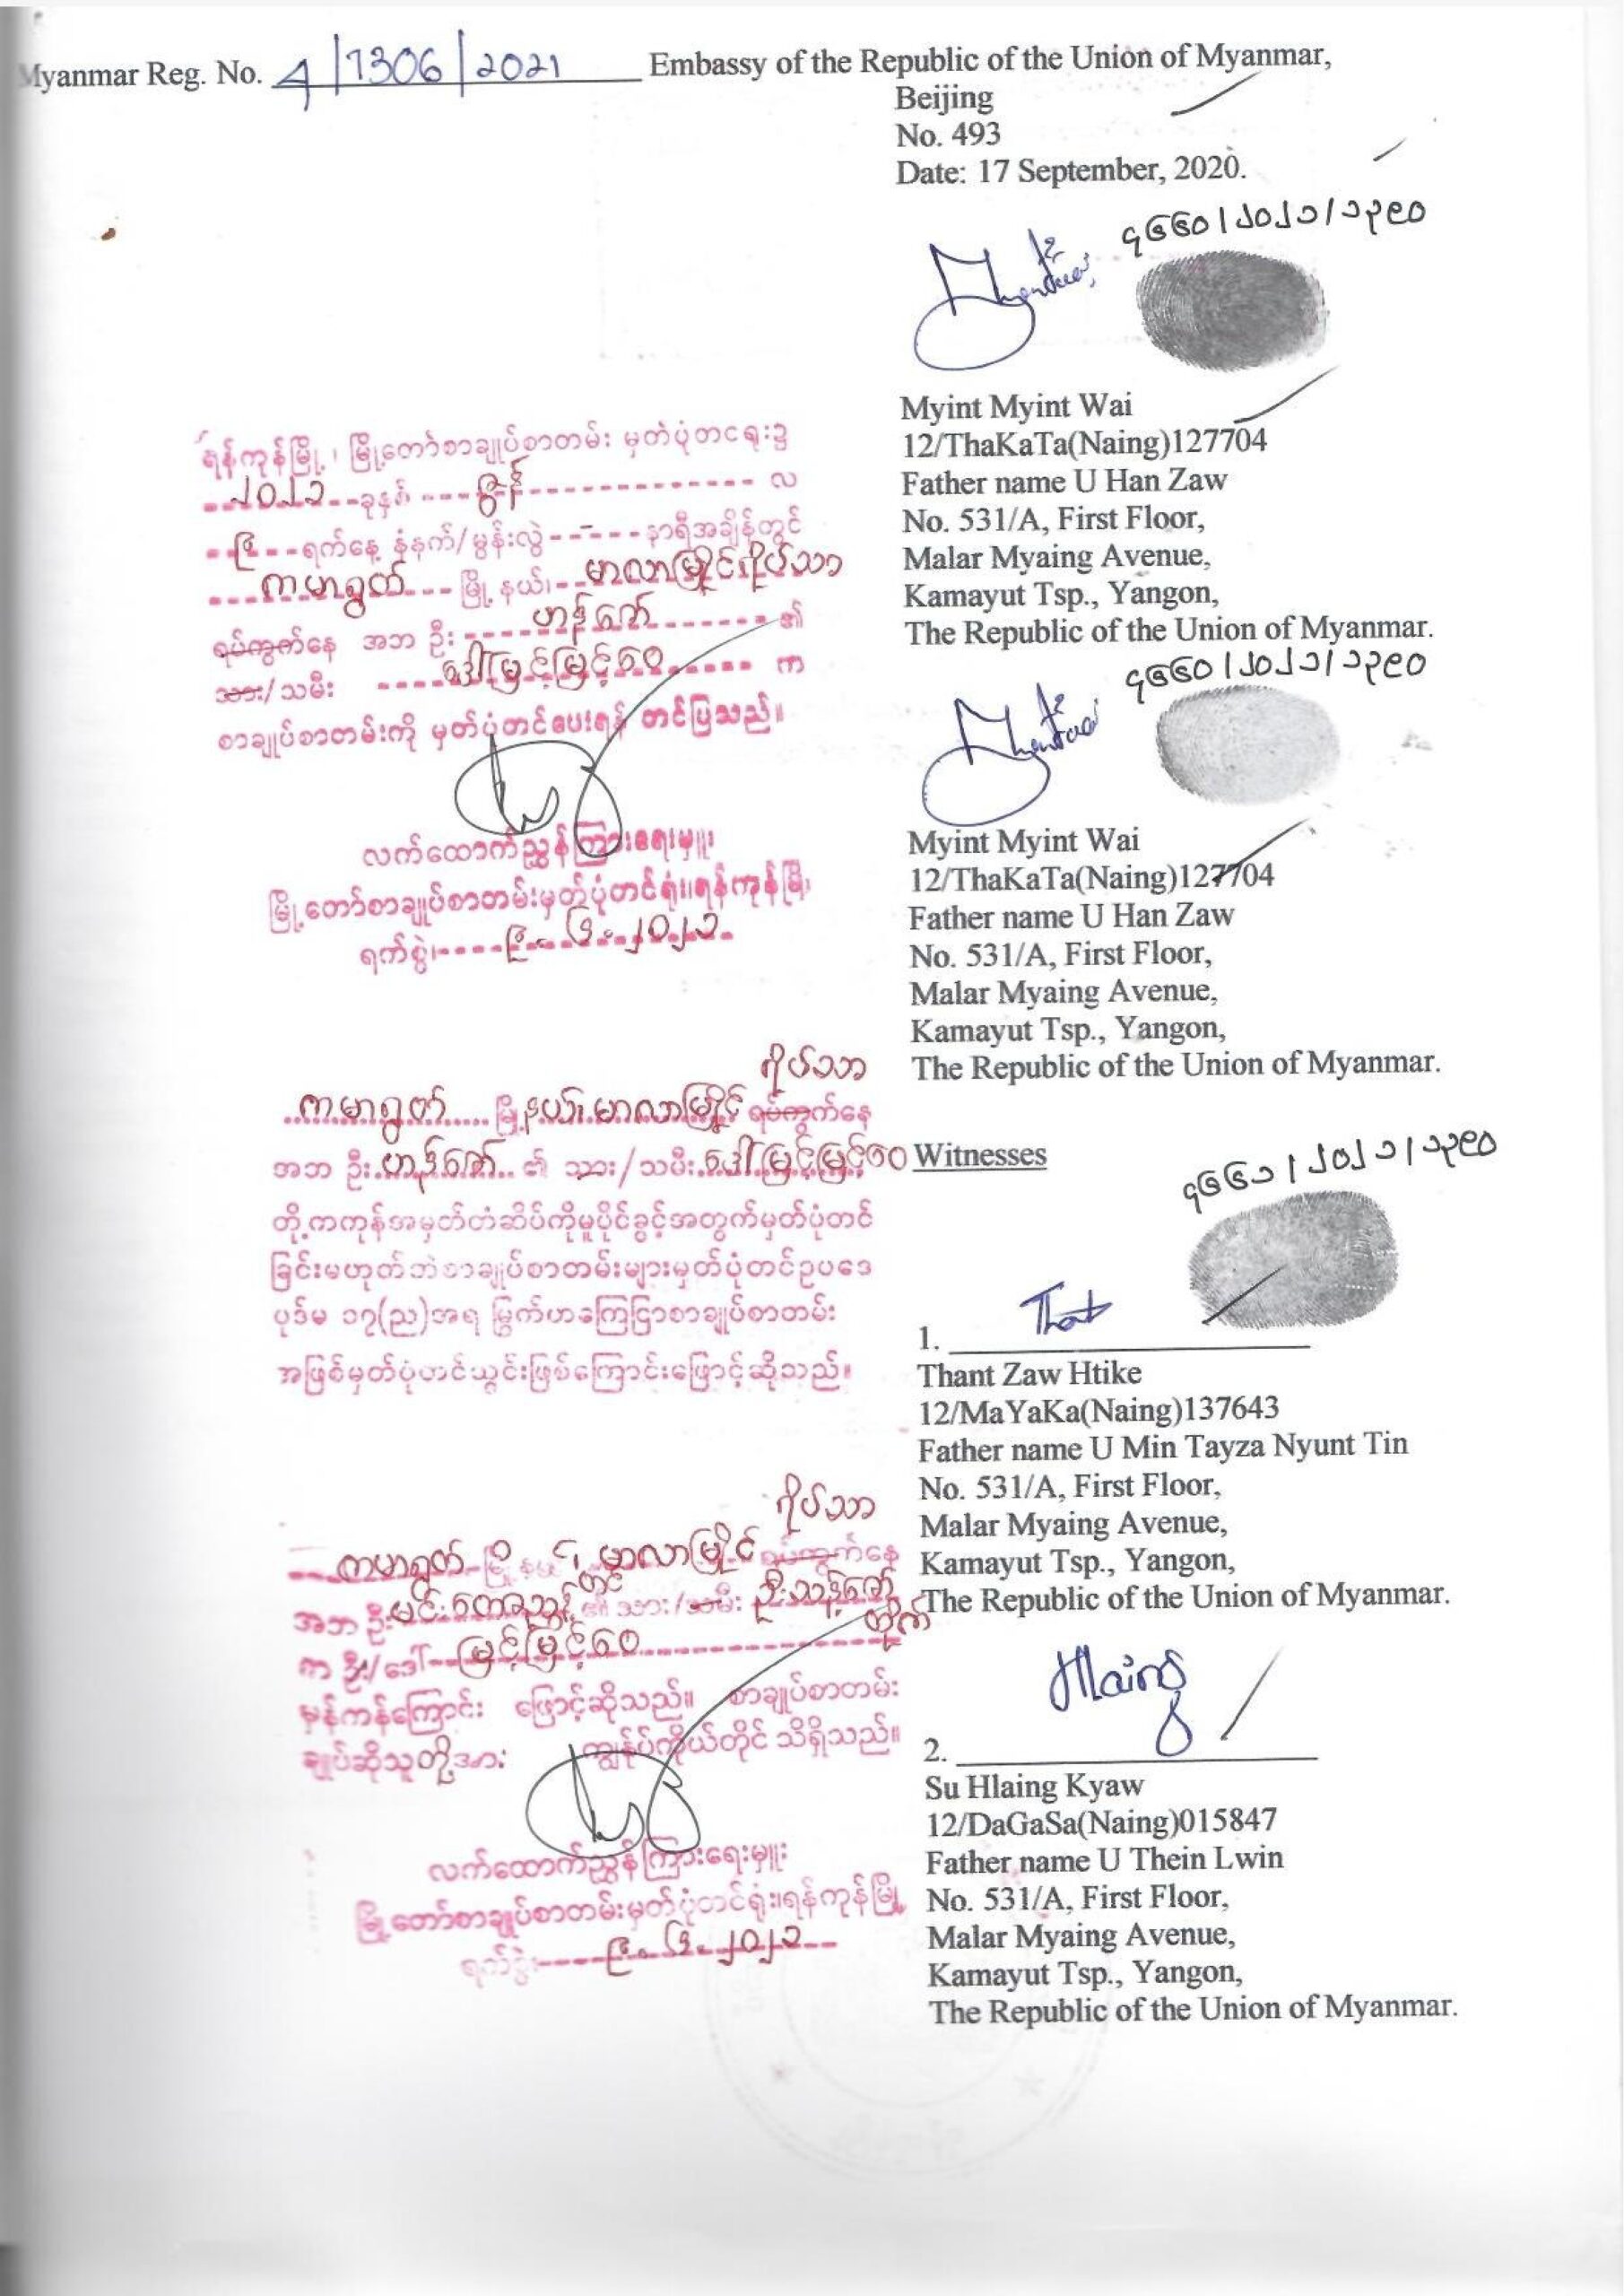 Myanmar Reg. No. 4/7306/2021 Embassy of the Republic of the Union of Myanmar,
Beijing
No. 493
Date: 17 September, 2020.
၄၆၆၀/၂၀၂၁/၁၃၉၀
Myint Myint Wai
12/ThaKaTa(Naing)127704
Father name U Han Zaw
No. 531/A, First Floor,
Malar Myaing Avenue,
Kamayut Tsp., Yangon,
The Republic of the Union of Myanmar.
ရန်ကုန်မြို့၊ မြို့တော်စာချုပ်စာတမ်း မှတ်ပုံတင်ရုံး၌
၂၀၂၁ ခုနှစ် ဇွန် လ
၉ ရက်နေ့ နံနက်/မွန်းလွဲ - နာရီအချိန်တွင်
ကမာရွတ် မြို့နယ်၊ မာလာမြိုင်ရိပ်သာ
ရပ်ကွက်နေ အဘ ဦး ဟန်ဇော် ၏
သား/သမီး ဒေါ်မြင့်မြင့်ဝေ က
စာချုပ်စာတမ်းကို မှတ်ပုံတင်ပေးရန် တင်ပြသည်။
လက်ထောက်ညွှန်ကြားရေးမှူး
မြို့တော်စာချုပ်စာတမ်းမှတ်ပုံတင်ရုံး၊ရန်ကုန်မြို့
ရက်စွဲ၊ ၉.၆.၂၀၂၁
၄၆၆၀/၂၀၂၁/၁၃၉၀
Myint Myint Wai
12/ThaKaTa(Naing)127704
Father name U Han Zaw
No. 531/A, First Floor,
Malar Myaing Avenue,
Kamayut Tsp., Yangon,
The Republic of the Union of Myanmar.
ရိပ်သာ
ကမာရွတ် မြို့နယ်၊ မာလာမြိုင် ရပ်ကွက်နေ
အဘ ဦး ဟန်ဇော် ၏ သား/သမီး ဒေါ်မြင့်မြင့်ဝေ
တို့ကကုန်အမှတ်တံဆိပ်ကိုမူပိုင်ခွင့်အတွက်မှတ်ပုံတင်
ခြင်းမဟုတ်ဘဲစာချုပ်စာတမ်းများမှတ်ပုံတင်ဥပဒေ
ပုဒ်မ ၁၇(ည)အရ မြွက်ဟကြေငြာစာချုပ်စာတမ်း
အဖြစ်မှတ်ပုံတင်ယွင်းဖြစ်ကြောင်းဖြောင့်ဆိုသည်။
Witnesses
၄၆၆၁/၂၀၂၁/၁၃၉၀
1. Thant
Thant Zaw Htike
12/MaYaKa(Naing)137643
Father name U Min Tayza Nyunt Tin
No. 531/A, First Floor,
Malar Myaing Avenue,
Kamayut Tsp., Yangon,
The Republic of the Union of Myanmar.
ရိပ်သာ
ကမာရွတ် မြို့နယ်၊ မာလာမြိုင် ရပ်ကွက်နေ
အဘ ဦး မင်းတေဇညွန့်တင် ၏ သား/သမီး ဦးသန့်ဇော်ထိုက်
က ဦး/ဒေါ် မြင့်မြင့်ဝေ
မှန်ကန်ကြောင်း ဖြောင့်ဆိုသည်။ စာချုပ်စာတမ်း
ချုပ်ဆိုသူတို့အား ကျွန်ုပ်ကိုယ်တိုင် သိရှိသည်။
လက်ထောက်ညွှန်ကြားရေးမှူး
မြို့တော်စာချုပ်စာတမ်းမှတ်ပုံတင်ရုံး၊ရန်ကုန်မြို့
ရက်စွဲ၊ ၉.၆.၂၀၂၁
2. Hlaing
Su Hlaing Kyaw
12/DaGaSa(Naing)015847
Father name U Thein Lwin
No. 531/A, First Floor,
Malar Myaing Avenue,
Kamayut Tsp., Yangon,
The Republic of the Union of Myanmar.